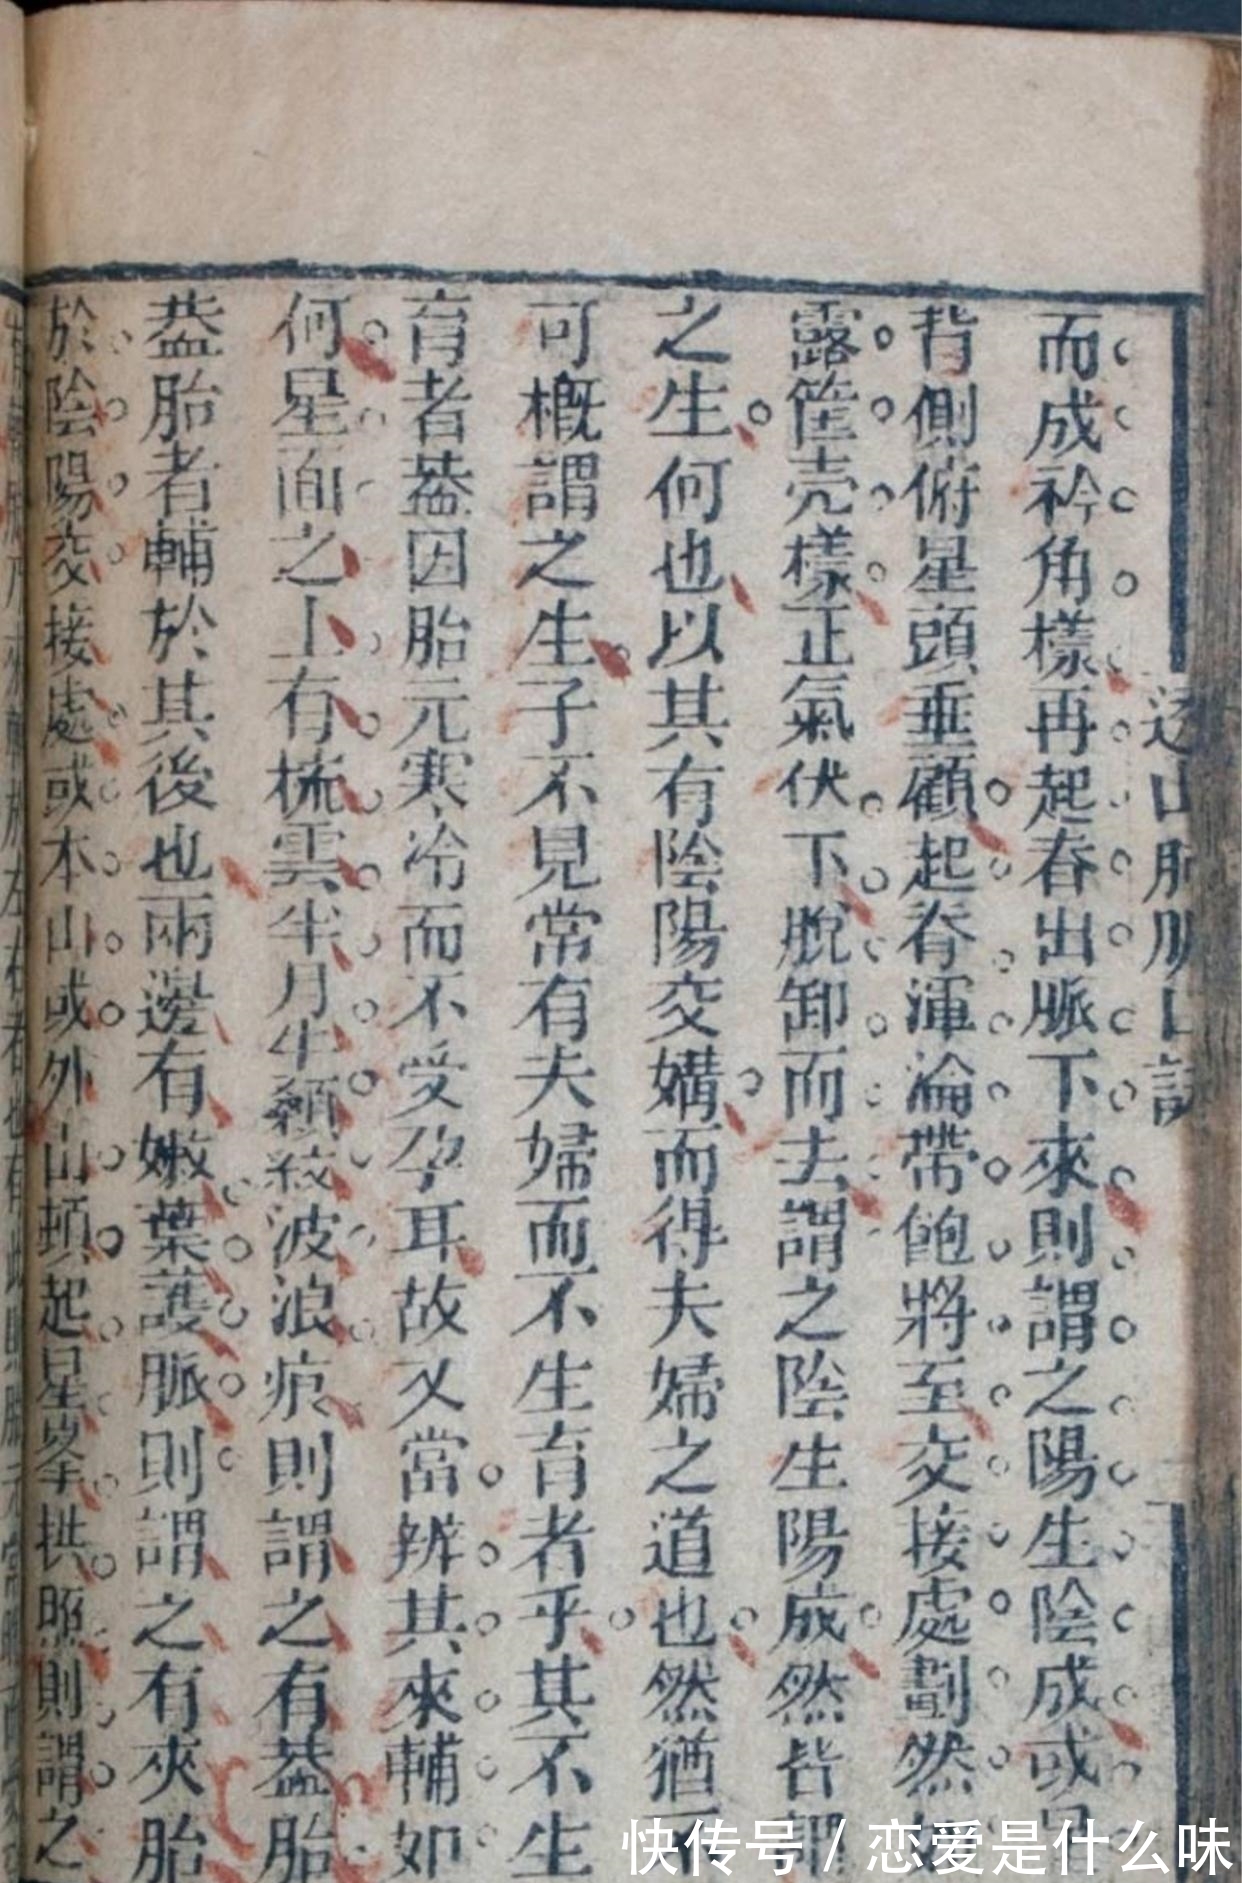 而成衿角樣再起脊出脈下來則謂之陽生陰成或
背側俯星頭垂顧起脊渾淪帶飽將至交接處劃然
露筐壳樣正氣伏下脫卸而去謂之陰生陽成然皆
之生何也以其有陰陽交媾而得夫婦之道也然猶
可概謂之生子不見常有夫婦而不生育者乎其不生
育者葢因胎元寒冷而不受孕耳故又當辨其來輔如
何星面之上有梳雲半月牛領紋波浪痕則謂之有葢胎
葢胎者輔於其後也兩邊有嫩葉護脈則謂之有夾胎
於陰陽交接處或本山或外山頓起星峯拱照則謂之
快传号 / 恋爱是什么味